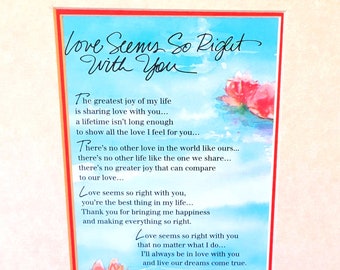 Love Seems So Right
With You
The greatest joy of my life
is sharing love with you...
a lifetime isn't long enough
to show all the love I feel for you...
There's no other love in the world like ours...
there's no other life like the one we share...
there's no greater joy that can compare
to our love...
Love seems so right with you,
you're the best thing in my life...
Thank you for bringing me happiness
and making everything so right.
Love seems so right with you
that no matter what I do...
I'll always be in love with you
and live our dreams come true.